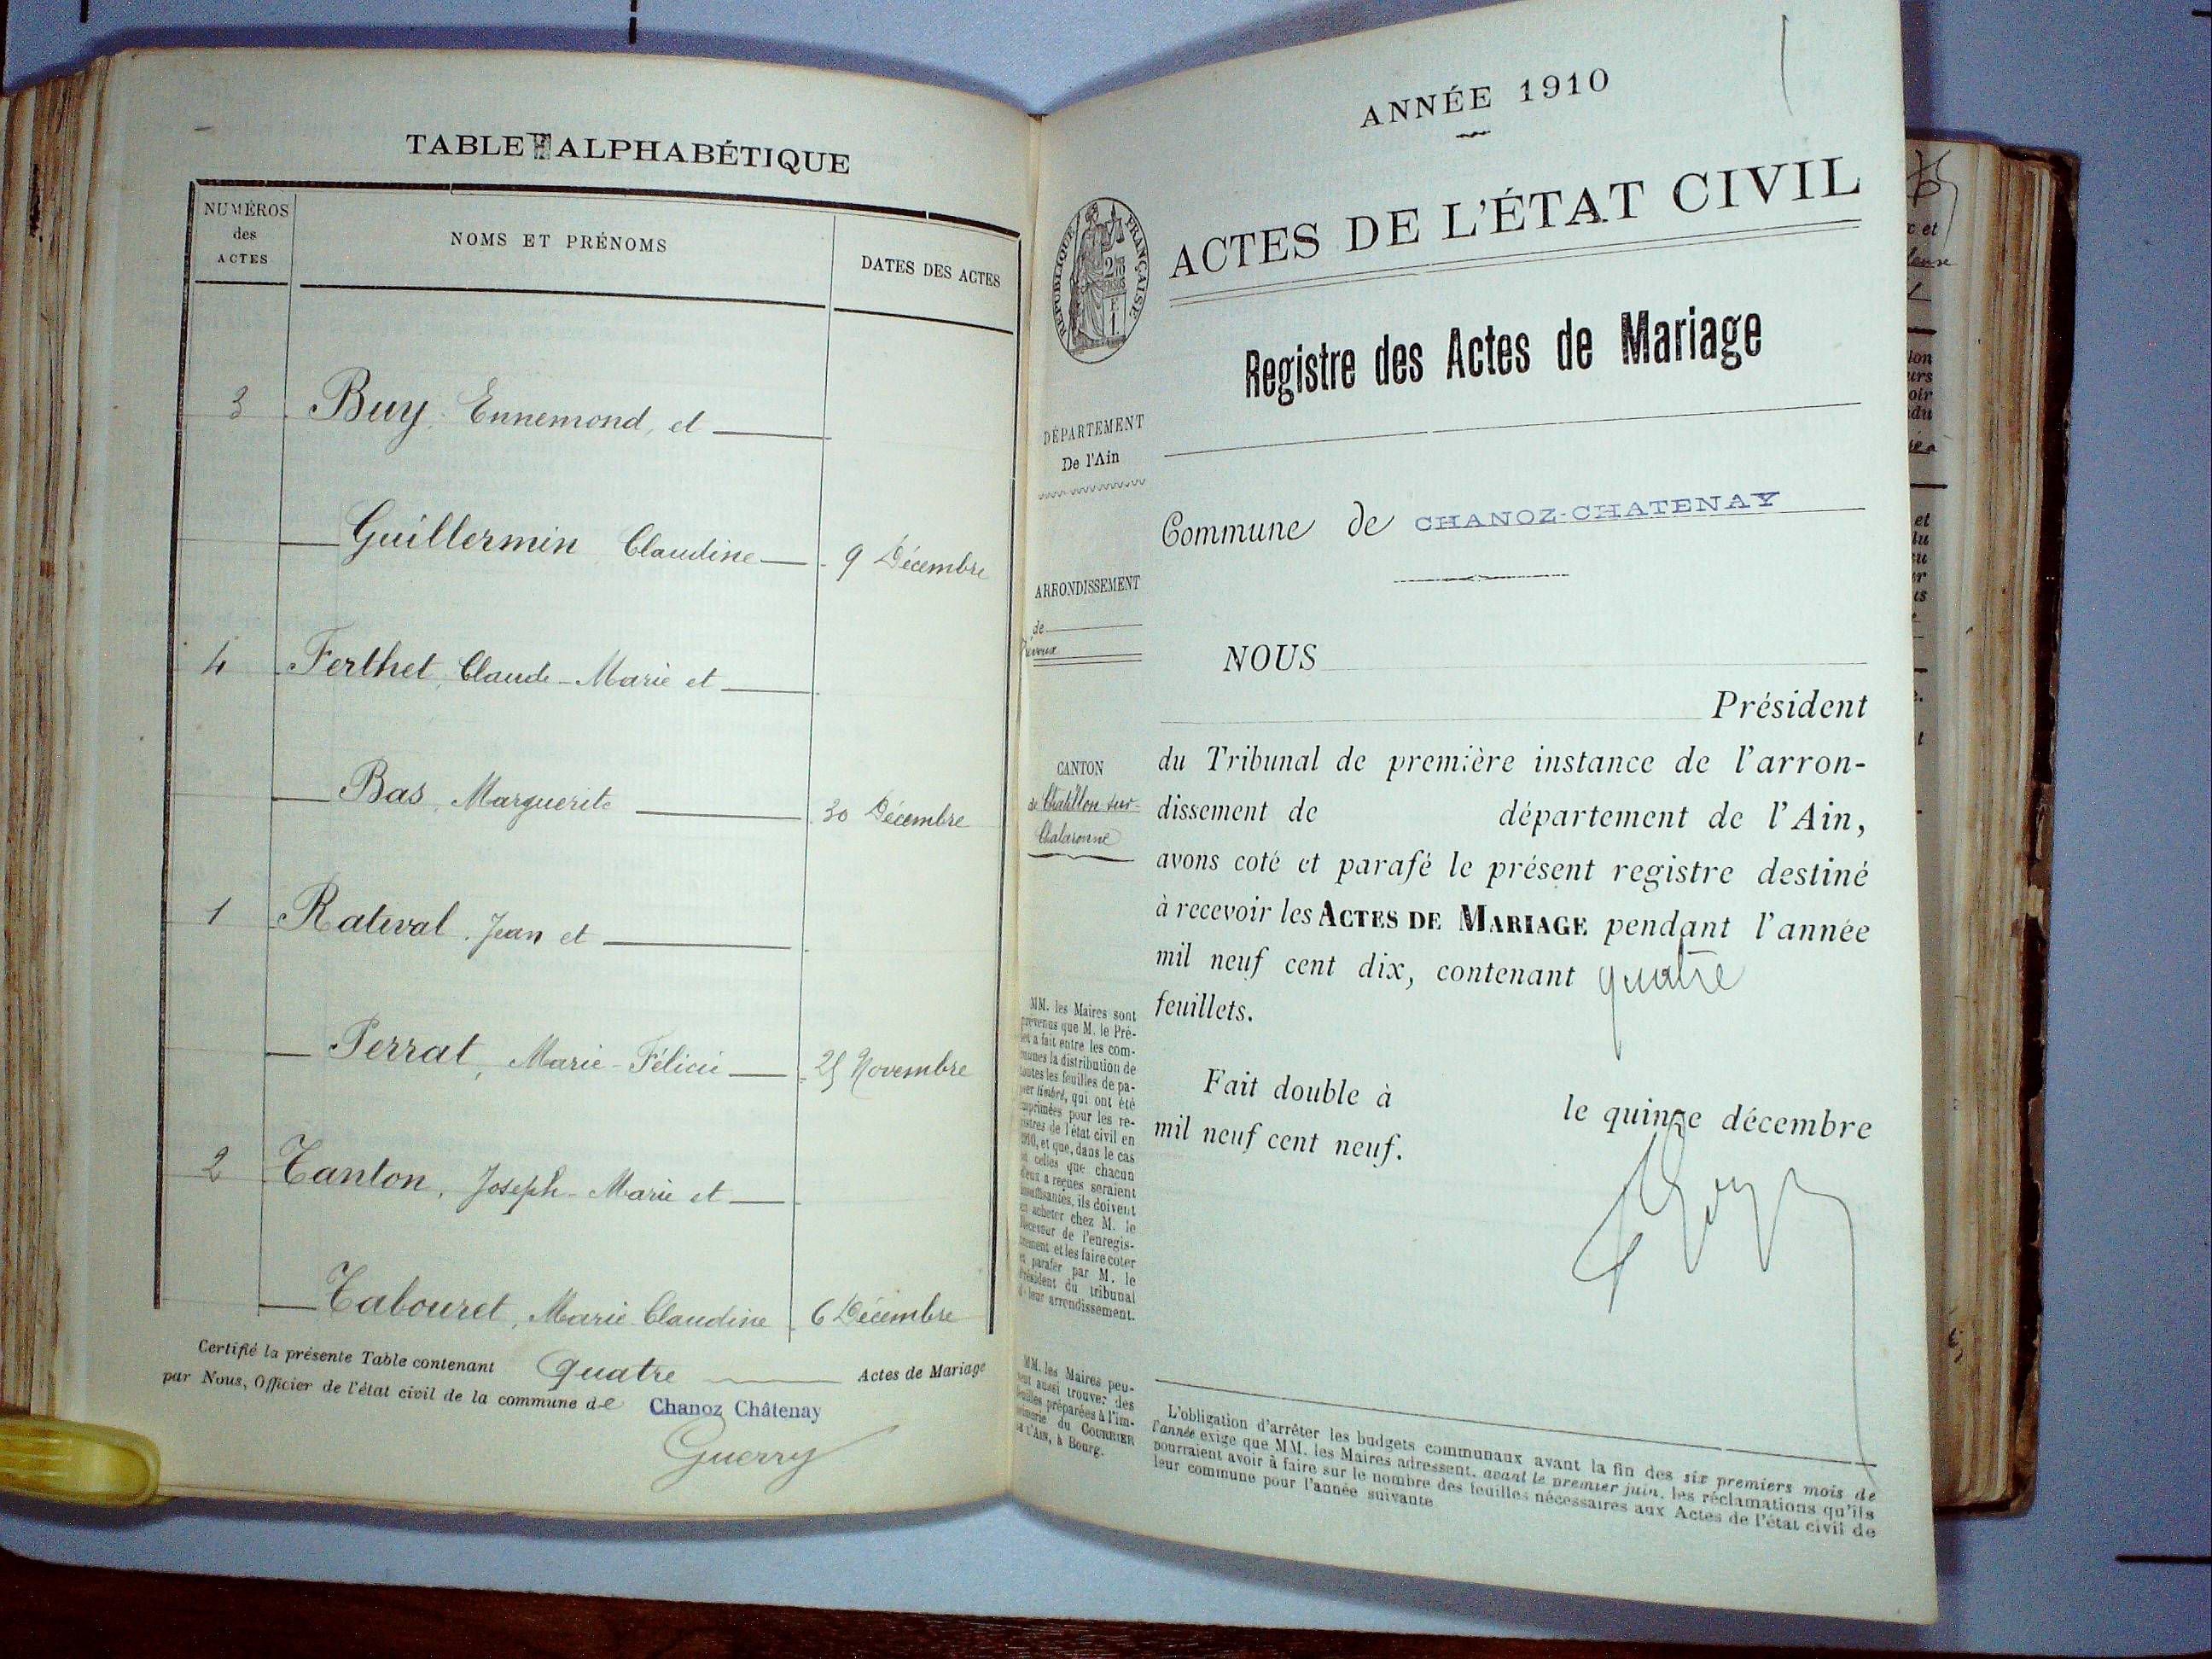 TABLE ALPHABÉTIQUE
NUMÉROS
des
ACTES
NOMS ET PRÉNOMS
DATES DES ACTES
3 Buy, Ennemond, et
Guillermin Claudine 9 Décembre
4 Ferthet, Claude-Marie et
Bas, Marguerite 30 Décembre
1 Rateval, Jean et
Perrat, Marie-Félicie 25 Novembre
2 Tanton, Joseph-Marie et
Tabouret, Marie Claudine 6 Décembre
Certifié la présente Table contenant quatre Actes de Mariage
par Nous, Officier de l'état civil de la commune de Chanoz Châtenay
Guerry
ANNÉE 1910
ACTES DE L'ÉTAT CIVIL
RÉPUBLIQUE FRANÇAISE
Registre des Actes de Mariage
DÉPARTEMENT
De l'Ain
Commune de CHANOZ-CHATENAY
ARRONDISSEMENT
de
Trévoux
CANTON
de Chatillon sur-
Chalaronne
NOUS
Président
du Tribunal de première instance de l'arron-
dissement de département de l'Ain,
avons coté et parafé le présent registre destiné
à recevoir les ACTES DE MARIAGE pendant l'année
mil neuf cent dix, contenant quatre
feuillets.
Fait double à le quinze décembre
mil neuf cent neuf.
MM. les Maires sont
prévenus que M. le Pré-
fet a fait entre les com-
munes la distribution de
toutes les feuilles de pa-
pier timbré, qui ont été
imprimées pour les re-
gistres de l'état civil en
1910, et que, dans le cas
où celles que chacun
d'eux a reçues seraient
insuffisantes, ils doivent
en acheter chez M. le
Receveur de l'enregis-
trement et les faire coter
et parafer par M. le
Président du tribunal
de leur arrondissement.
MM. les Maires peu-
vent aussi trouver des
feuilles préparées à l'im-
primerie du COURRIER
de l'AIN, à Bourg.
L'obligation d'arrêter les budgets communaux avant la fin des six premiers mois de
l'année exige que MM. les Maires adressent, avant le premier juin, les réclamations qu'ils
pourraient avoir à faire sur le nombre des feuilles nécessaires aux Actes de l'état civil de
leur commune pour l'année suivante